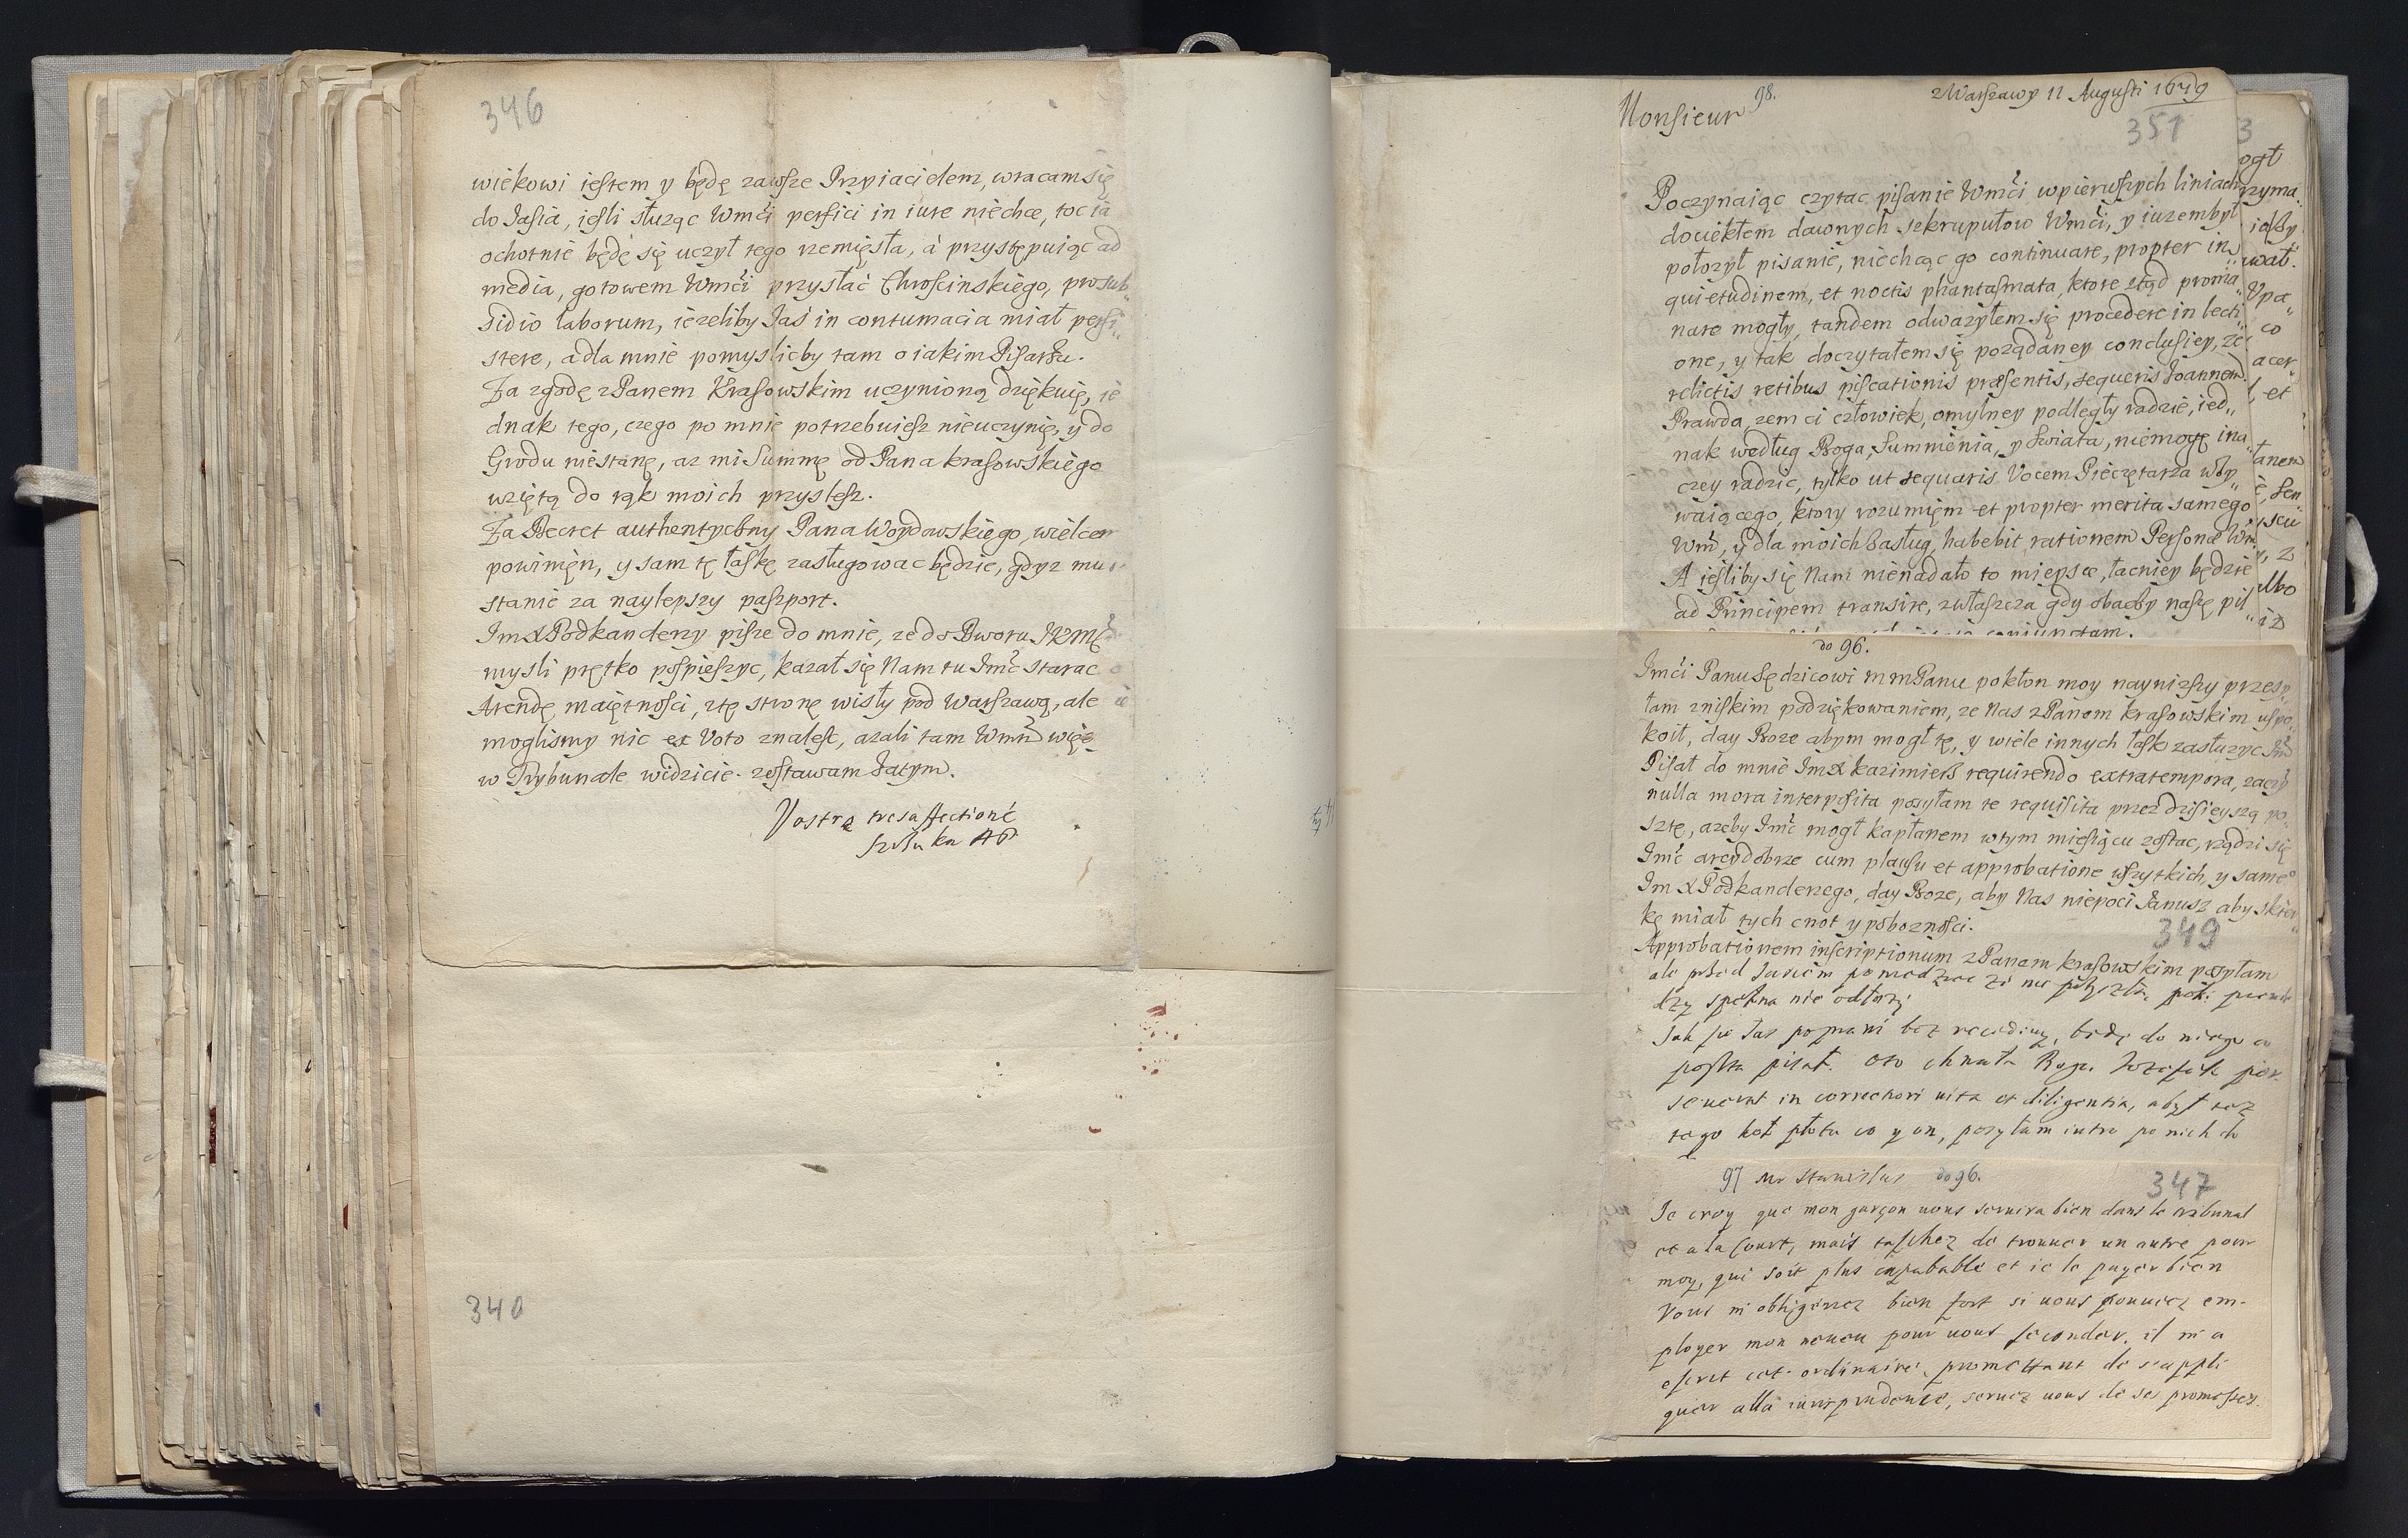 346
wiekowi iestem y będę zawsze Przyiacielem, wracam się
do Jasia, iesli służąc Wmći perfici in iure niechce, toc ia
ochotnie będę się uczył tego rzemięsła, á przystępuiąc ad
media, gotowem Wmći przysłać Chroscinskiego, pro sub„
sidio laborum, iezeliby Jaś in contumacia miał persi„
stere, a dla mnie pomyslicby tam o iakim Pisarzu.
Za zgodę z Panem Krasowskim uczynioną dziękuię, ie
dnak tego, czego po mnie potrzebuiesz nieuczynię, y do
Grodu niestanę, az mi Summę od Pana Krasowskiego
wziętą do rąk moich przyslesz.
Za Decret authentyczny Pana Woydowskiego, wielcem
powinięn, y sam tę łaskę zasługowac będzie, gdyz mu
stanie za naylepszy paszport.
ImX Podkanclerzy pisze do mnie, ze do Dworu JKMći
mysli prętko pospieszyc, kazał się Nam tu Imć starac o
Arendę maiętnosci, z tę stronę wisły pod Warszawą, ale
moglismy nic ex Voto znalesc, azali tam Wmć więc
w Trybunale widzicie. zostawam Zatym.
Vostre tresaffectioné
Szczuka AP
340
98.
z Warszawy 11 Augusti 1679
Monsieur
351
3
Poczynaiąc czytac pisanie Wmći w pierwszych liniach
dociekłem dawnych szkrupułow Wmći, y iuzembył
położył pisanie, niechcąc go continuare, propter in„
quietudinem, et noctis phantasmata, ktore ztąd proma„
nare mogły, tandem odwazyłem się procedere in lecti„
one, y tak doczytałem się poządaney conclusiey, ze
relictis retibus piscationis præsentis, sequeris Joannem.
Prawda, zem ci człowiek, omylney podległy radzie, ied„
nak według Boga, Summienia, y Swiata, niemogę ina„
czey radzic, tylko ut sequaris Vocem Pieczętarza wzy„
waiącego, ktory rozumięm et propter merita samego
Wmć, y dla moich Zasług, habebit rationem Personæ Wm
A iesliby się Nam nienadało to mieysce, łacniey będzie
ad Principem transire, zwłaszcza gdy obaczy naszę pil„
coniunctam.
ogł
rzyma„
iąby
wał.
Vpa„
co
acer„
et
tanem
sen„
scu
z
Albo
iż
do 96.
Imći Panu Sędzicowi mmPanu pokłon moy nayniższy przesy„
łam z niskim podziękowaniem, ze Nas z Panem Krasowskim uspo„
koił, day Boze abym mogł tę, y wiele innych łask zasłuzyc Imć
Pisał do mnie ImX Kazimierz requirendo extratempora, zaczym
nulla mora interposita posyłam te requisita przez dzisieyszą po„
sztę, azeby Imć mogł kapłanem w tym miesiącu zostac, rządzi się
Imć arcydobrze cum plausu et approbatione wszytkich, y samego
ImX Podkanclerzego, day Boze, aby Nas niepoci Janusz aby skier„
kę miał tych cnot y poboznosci.
349
Approbationem inscriptionum z Panem Krasowskim posyłam
ale przed Jasiem
dzy spełna nie odłozi
Jak się Jas poprawi bez recidiwy, będę do niego co
posta pisał. Oto chwała Bogu Jozefek per„
seuerat in correctiori uita et diligentia, abyt tez
tego kot płota co y on, posyłam iutro po nich do
97 Mr Stanislas do 96.
347
Je croy que mon garçon uous seruira bien dans le tribunal
et a la Court, mais taschez de trouuer un autre pour
moy, qui soit plus capabable et ie le payer bien
Vous m'obligerrez bien fort si uous pouuiez em-
ployer mon neueu pour uous seconder. il m'a
escrit cet ordinaire, promettant de s'appli
quer alla iurisprudence, seruez uous de ses promesses.